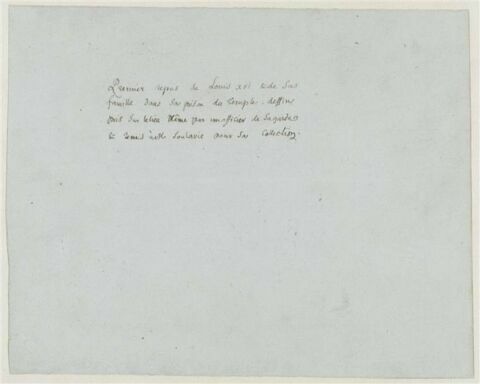 Premier repas de Louis XVI & de Sa
famille dans Sa prison du temple. dessin
pris Sur le lieu Même par un officier de Sa garde
& remis à Mr Soulavie pour Sa Collection.